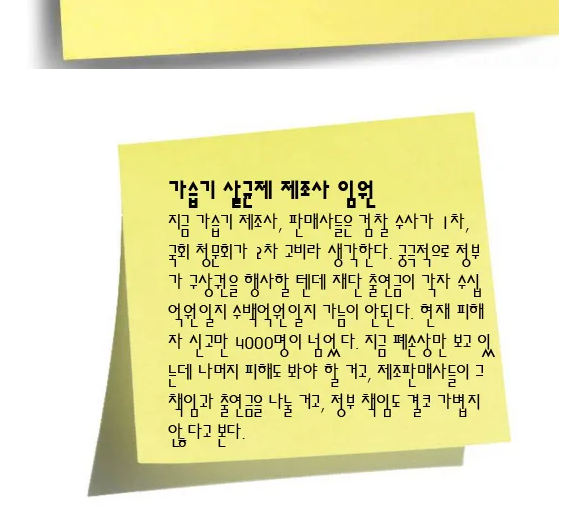 가습기 살균제 제조사 임원
지금 가습기 제조사, 판매사들은 검찰 수사가 1차,
국회 청문회가 2차 고비라 생각한다. 궁극적으로 정부
가 구상권을 행사할 텐데 재단 출연금이 각자 수십
억원일지 수백억원일지 가늠이 안된다. 현재 피해
자 신고만 4000명이 넘었다. 지금 폐손상만 보고 있
는데 나머지 피해도 봐야 할 거고, 제조판매사들이 그
책임과 출연금을 나눌 거고, 정부 책임도 결코 가볍지
않다고 본다.